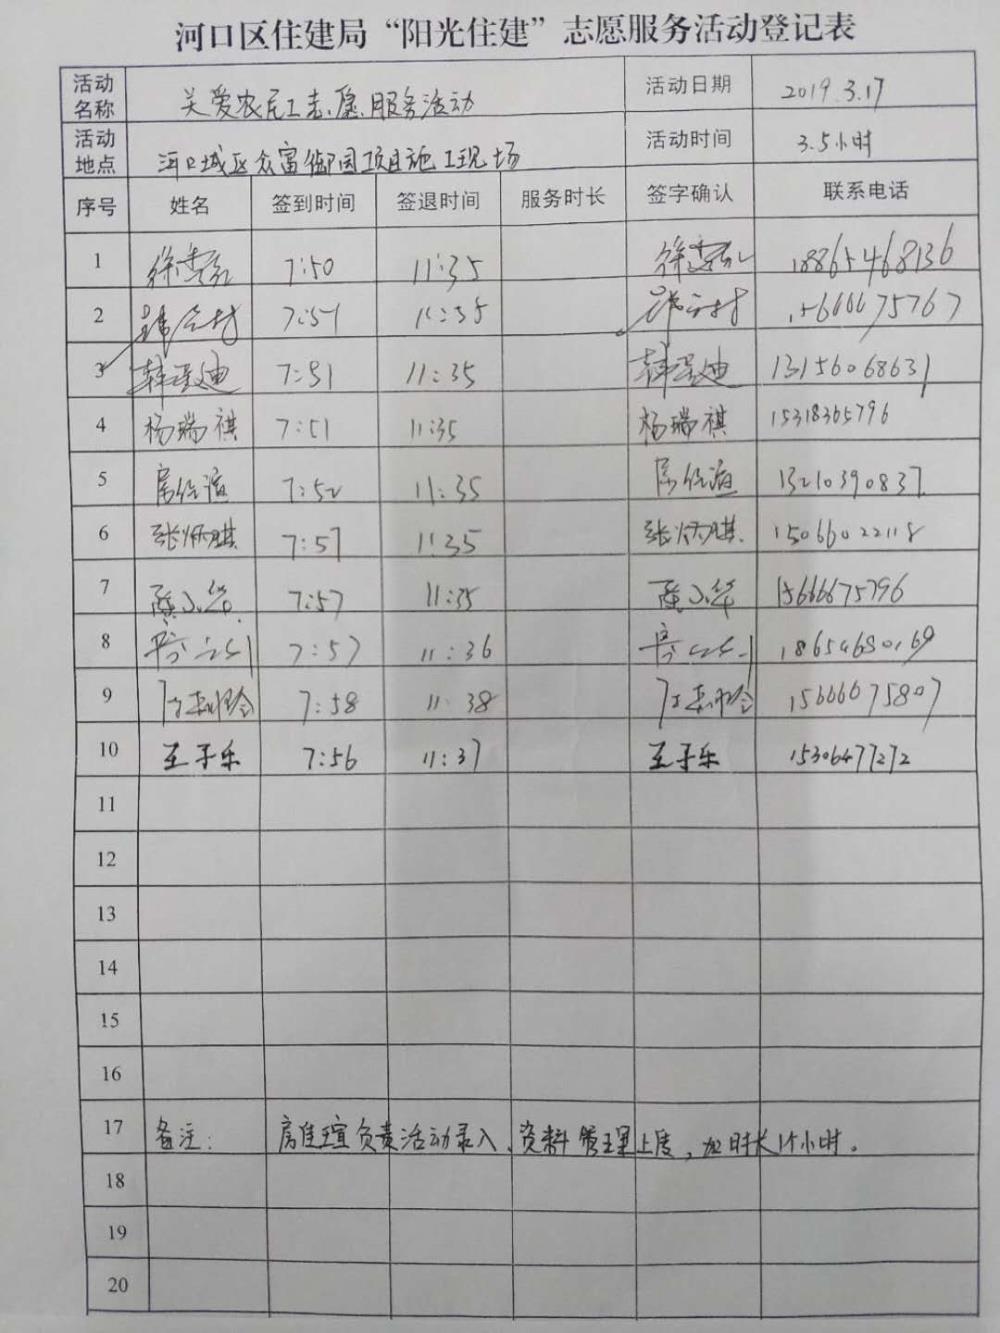 河口区住建局“阳光住建”志愿服务活动登记表
活动名称 关爱农民工志愿服务活动 活动日期 2019.3.17
活动地点 河口城区众富御园项目施工现场 活动时间 3.5小时
序号 姓名 签到时间 签退时间 服务时长 签字确认 联系电话
1 7:50 11:35 18865468136
2 7:51 11:35
3 7:51 11:35 13156068631
4 杨瑞祺 7:51 11:35 杨瑞祺 15318365796
5 7:52 11:35 13210390837
6 张炳琪 7:57 11:35 张炳琪 15066022118
7 7:57 11:35 15666675796
8 7:57 11:36
9 7:58 11:38 15666675807
10 王子乐 7:56 11:37 王子乐 15306477272
11
12
13
14
15
16
17 备注: 房佳瑄负责活动录入、资料管理上传,加时长1个小时。
18
19
20